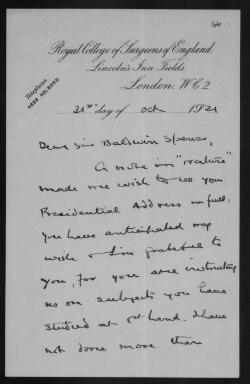 46
Royal College of Surgeons of England,
Lincoln's Inn Fields,
London, W.C.2.
Telephone,
HOLBORN.
31st day of Oct 1921
Dear Sir Baldwin Spencer,
A note in "Nature"
made me wish to see your
Presidential Address in full:
You have anticipated my
wish & I'm grateful to
you, for you are instructing
us on subjects you have
studied at 1st hand. I have
not done more than